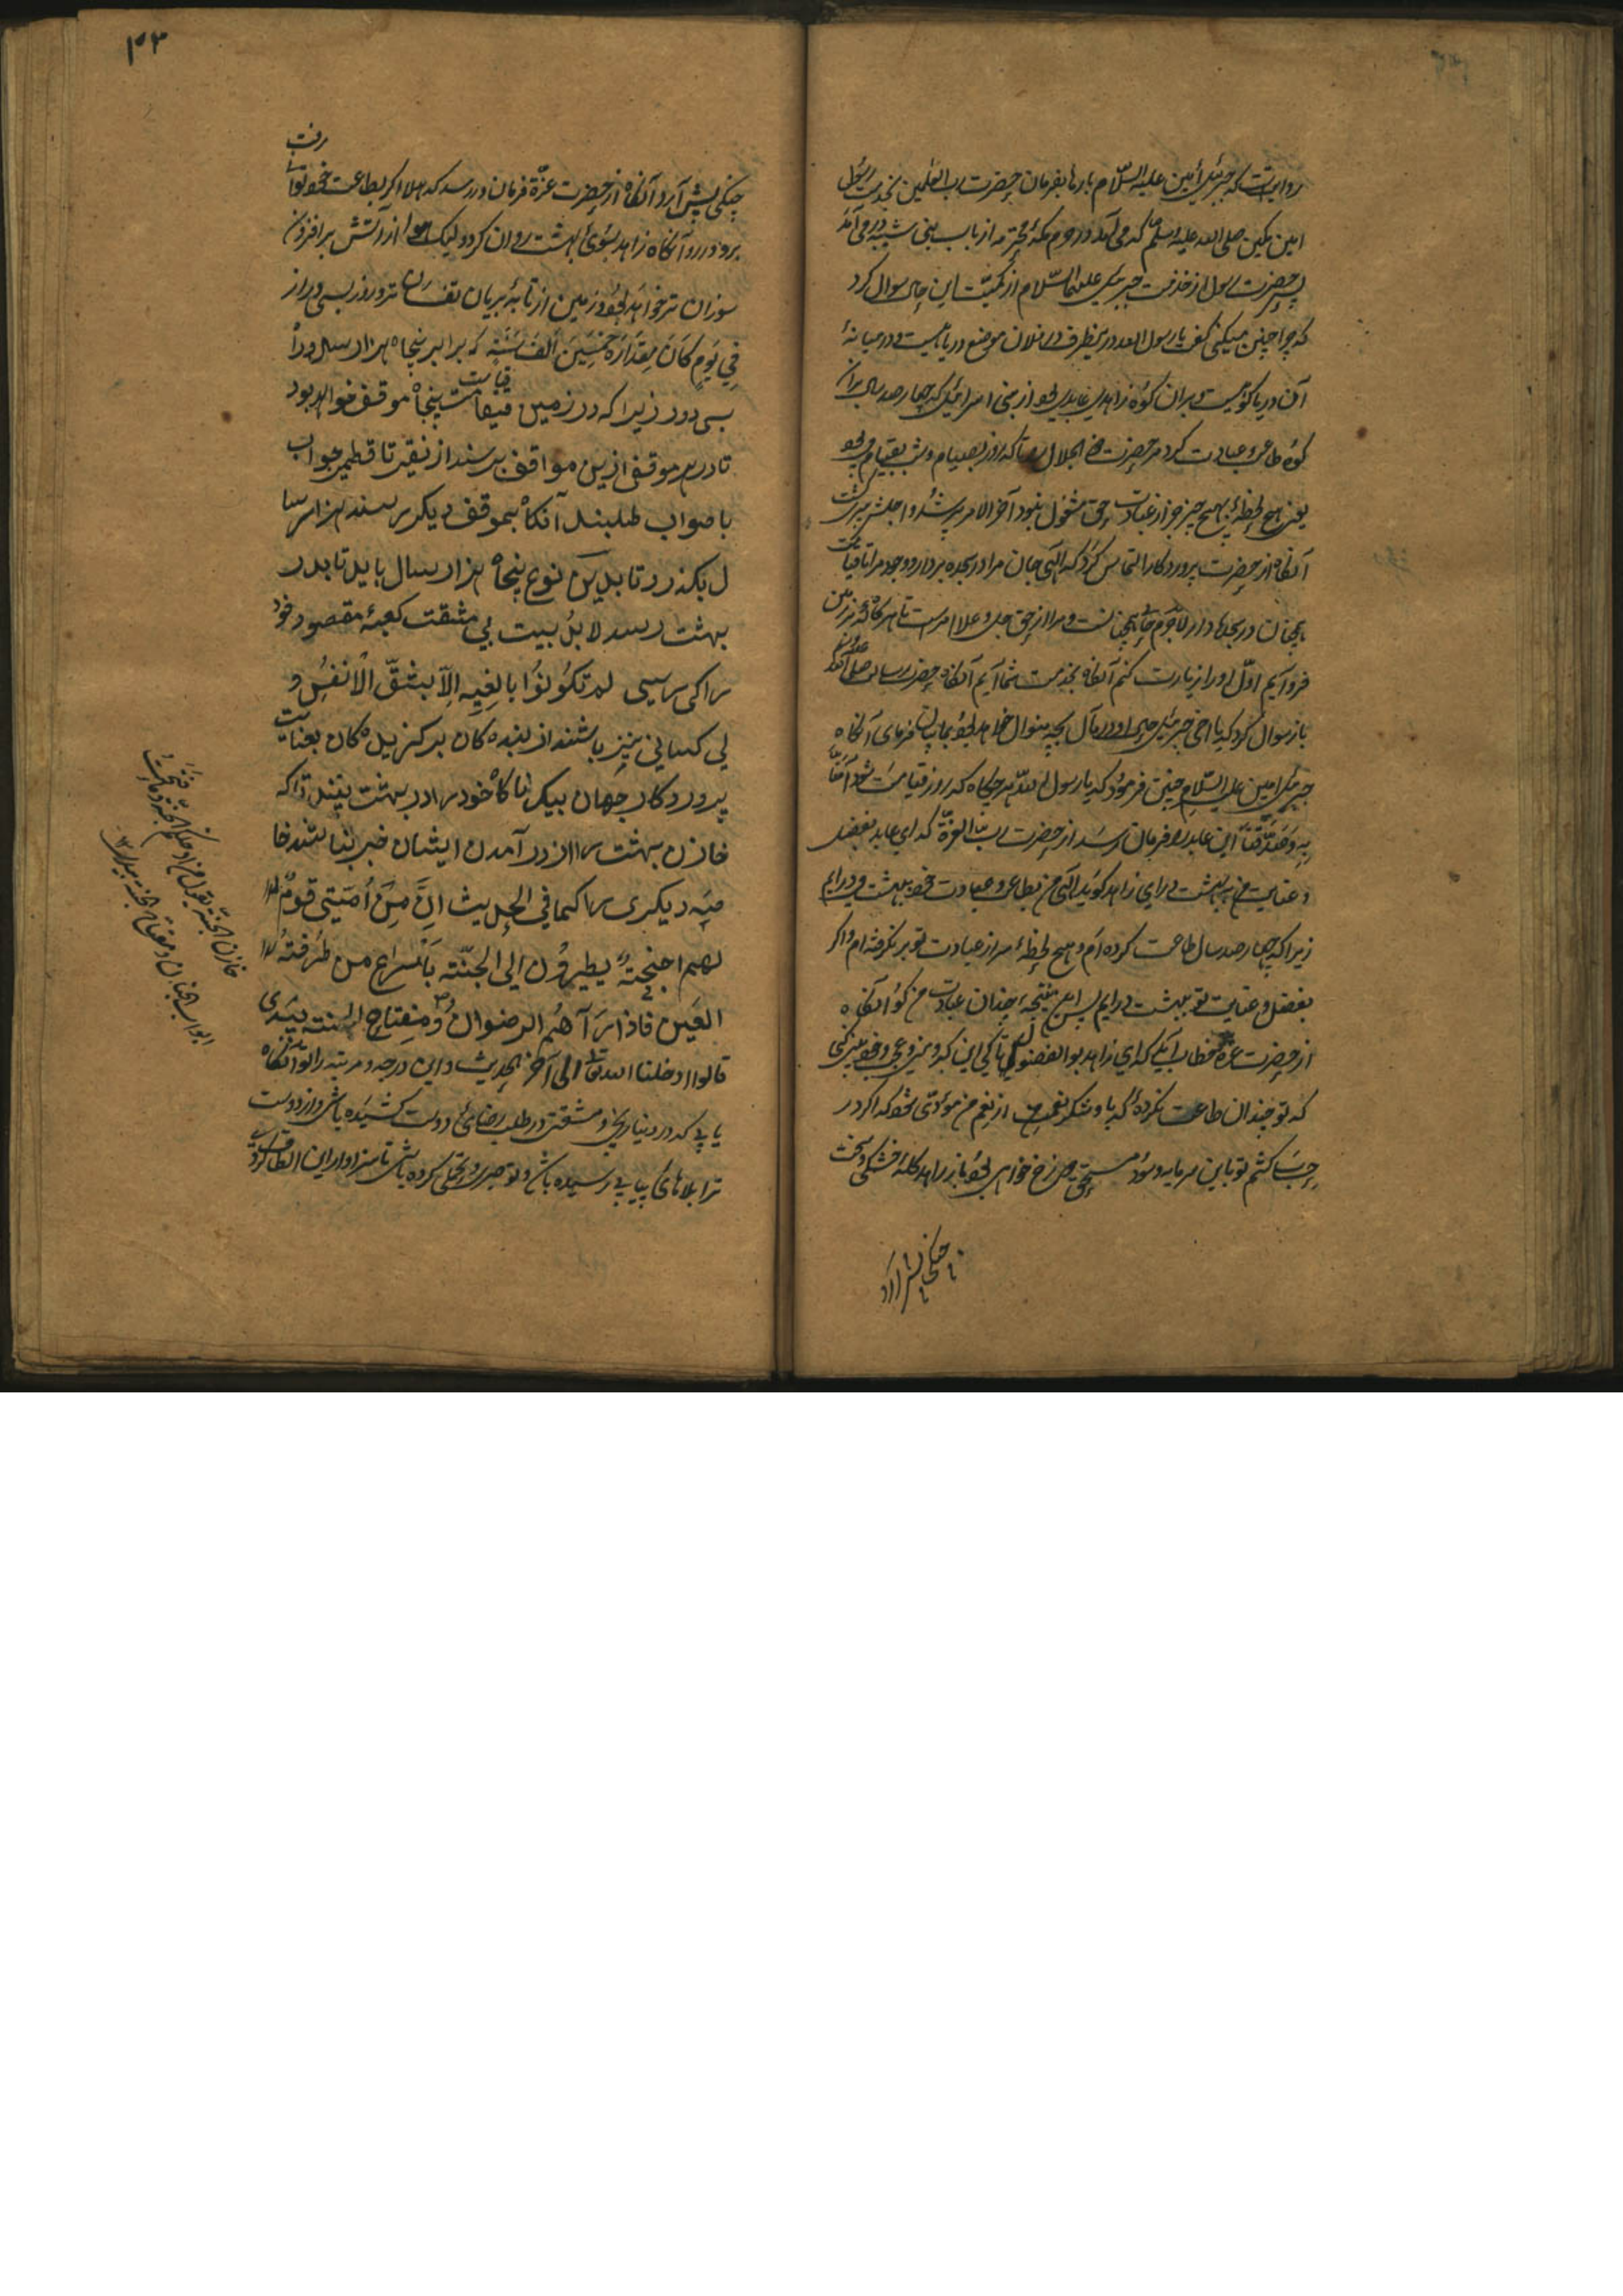 روایتست که جبرئیل امین علیه السّلام بارها بفرمان حضرت رب العلمین بخدمت رسول
امین مکین صلی الله علیه وسلم که می آمد در حرم مکهٔ محترمه از باب بنی شیبه در می آمد
حضرت رسول از خدمت جبرئیل علیهما السّلام از این سوال کرد
که چرا چنین میکنی گفت یا رسول الله در فلان موضع دریائیست و در میانهٔ
آن دریا کوئیست و بران کوه زاهدی عابدی بود از بنی اسرائیل که چهار صد سال بران
کوه طاعت و عبادت کرد مر حضرت ذو الجلال را تا که روز بصیام و شب بقیام می بود
یعنی هیچ لحظهٔ بهیچ چیز جز از عبادت حق مشغول نبود آخر الامر پیر شد و اجلش
آنگاه از حضرت پروردکار التماس کرد که الهی جان مرا در سجده بردار و وجود مرا تا قیامت
همچنان در سجده دار لاجرم همچنانست و مرا از حق جل و علا امر است تا هر گاه که بر زمین
فرو آیم اوّل او را زیارت کنم آنگاه بخدمت شما آیم آنگاه حضرت رسالت صلی الله علیه وسلم
باز سوال کرد که یا اخی جبرئیل او در مآل بچه منوال خواهد بود فرمای آنگاه
جبرئیل امین علیه السّلام چنین فرمود که یا رسول الله هر چگاه که روز قیامت شود آمنّا
به وصدّقنا این عابد را فرمان رسد از حضرت رب العزة که ای عابد بفضل
و عنایت من به بهشت در ای زاهد گوید الهی من بطاعت و عبادت خود ببهشت می درایم
زیرا که چهار صد سال طاعت کرده ام و هیچ لحظهٔ سر از عبادت تو بر نگرفته ام و اگر
بفضل و عنایت تو ببهشت درایم پس نتیجهٔ چندان عبادت من کو آنگاه
از حضرت عزة خطاب آید که ای زاهد بو الفضول تا کی این کبر و منی و عجب و خود بینی کنی
که تو چندان طاعت نکردهٔ که با و شکر نعمت از نعم من مؤدّی شود که اگر در
حساب کشم تو باین سرمایه و سود مستحق دوزخ خواهی بود باز زاهد کلهٔ خشکی و سخت
چنکی پیش آرد
٤٣
چنکی پیش آرد آنگاه از حضرت عزّة فرمان در رسد که هلا اگر بطاعت خود توانی رفت
برو در رو آنگاه زاهد بسوی بهشت روان گردد لیک هوا از آتش بر افزون
سوزان تر خواهد بود و زمین از تابهٔ بریان تفسان تر و روز بسی دراز
فِي يَومٍ كَانَ مِقدَارُه خَمسِينَ اَلفَ سَنَةٍ که برابر پنجاه هزار سال دراز
بی دور زیرا که در زمین قیامت پنجاه موقف خواهد بود
تا در هر موقفی ازین مواقف پرسند از نقیر تا قطمیر جواب
با صواب طلبند آنگاه بموقف دیگر رسند هزار سا
ل بگذرد تا بدین نوع پنجاه هزار سال باید تا بدر
بهشت رسد لابد بیت بی مشقت کعبهٔ مقصود خود
را کی رسی لم تکونوا بالغیه الّا بشقّ الانفس و
لی کسانی نیز باشند از بنده کان برگزیده کان بعنایت
پروردکار جهان بیک ناگاه خود را در بهشت بینند تا که
خازن بهشت را از در آمدن ایشان خبر نباشد خا
صّه دیگری را کما في الحدیث انّ من أمّتی قومٌ
لهم اجنحةٌ یطیرون الی الجنّة باسراع من طرفة
العین فاذا رآهم الرضوان ومفتاح الجنة بیدی
قالوا ادخلنا الله تعا الی آخر الحدیث و این درجه و مرتبه را تو آنگاه
یابی که در دنیا رنجی و مشقتی در طلب رضای دوست کشیده باشی و از دوست
ترا بلاهای پیاپی رسیده باشی و تو صبر و تحملی کرده باشی تا سزاوار این الطاف گردی
خازن الجنّة یقول
ابواب الجنان ومفتاح الجنّة بیدی